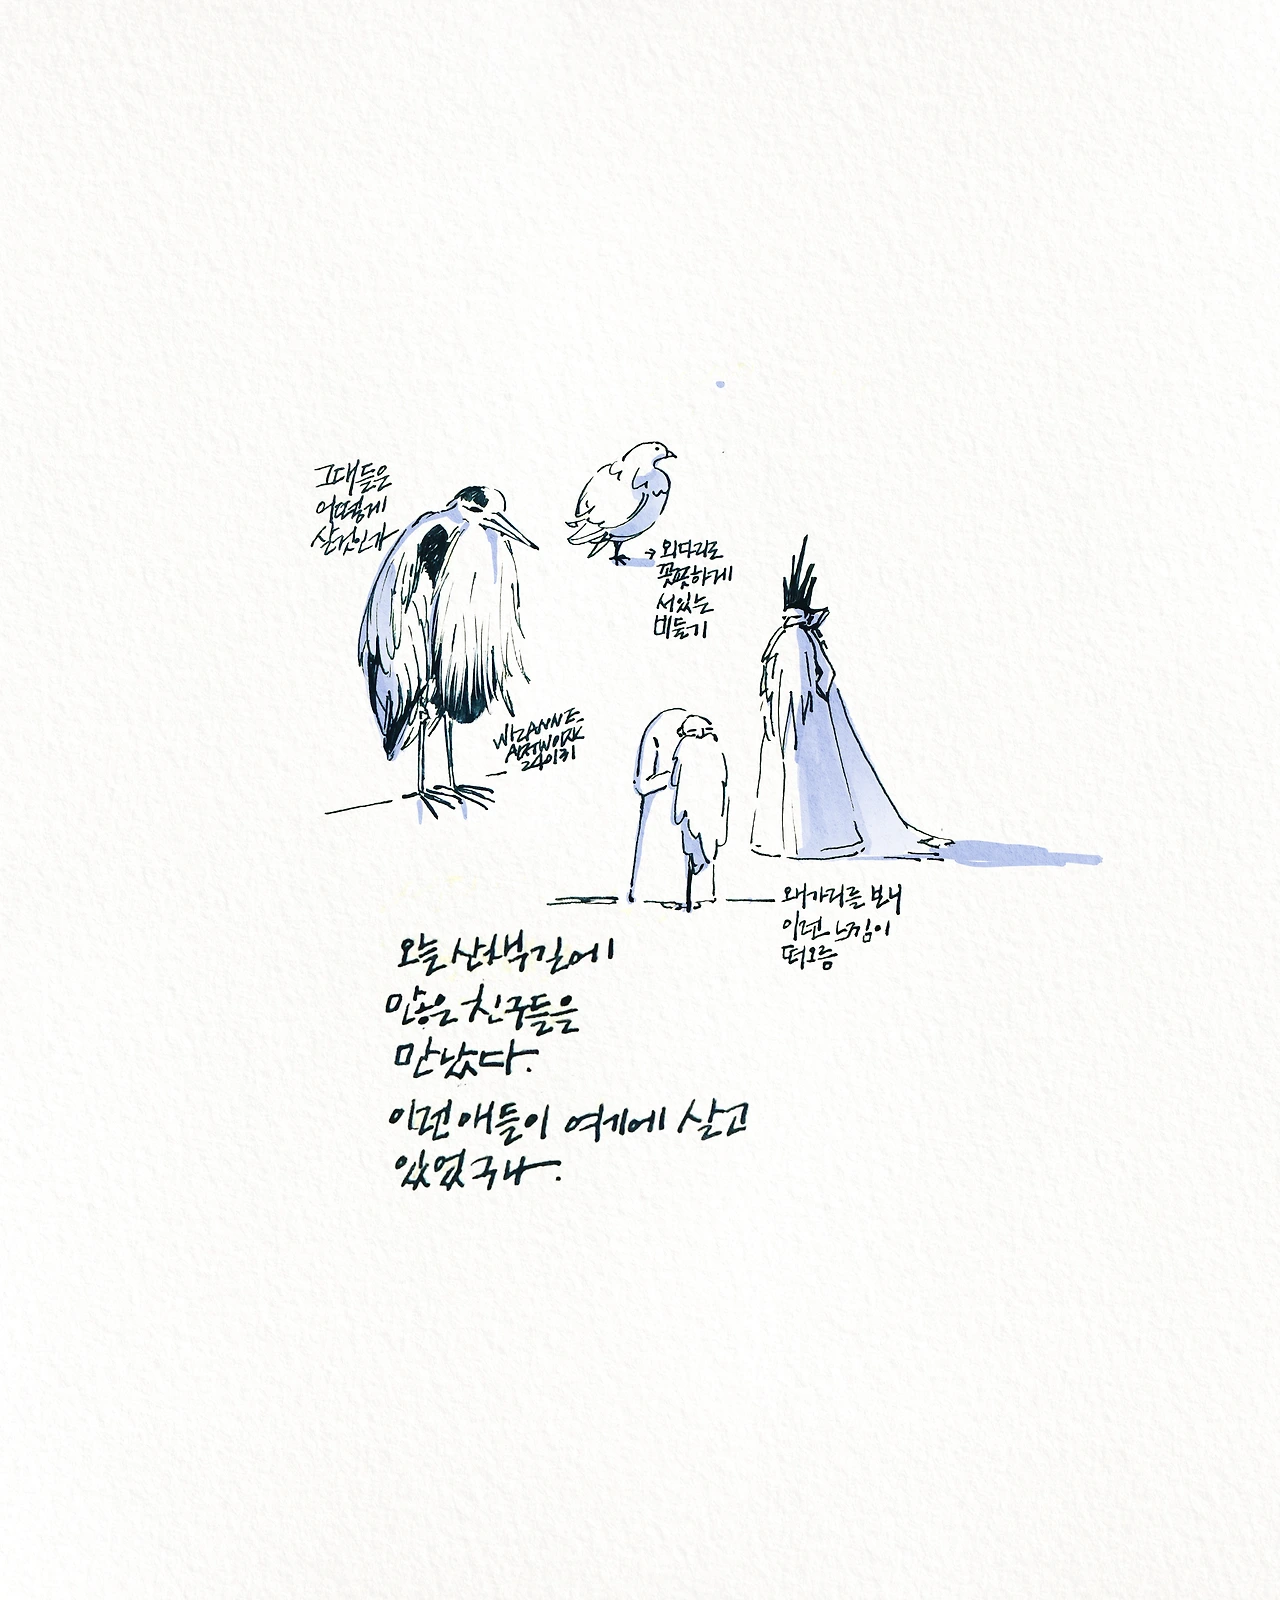 그대들은
어떻게
살것인가
외다리로
꼿꼿하게
서있는
비둘기
WIZANNE
왜가리를 보니
이런 느낌이
떠오름
오늘 산책길에
많은 친구들을
만났다.
이런 애들이 여기에 살고
있었구나.